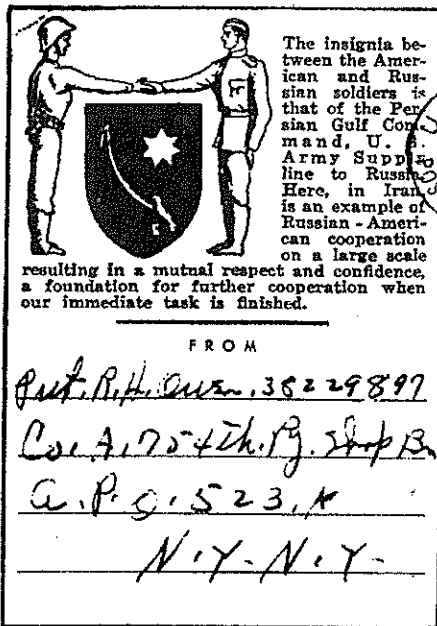 The insignia be-
tween the Amer-
ican and Rus-
sian soldiers is
that of the Per-
sian Gulf Com-
mand, U. S.
Army Supply
line to Russia.
Here, in Iran,
is an example of
Russian - Ameri-
can cooperation
on a large scale
resulting in a mutual respect and confidence,
a foundation for further cooperation when
our immediate task is finished.
FROM
Pvt. R. H. Owen, 38229897
Co. A, 754th. Ry. Shop Bn
A. P. O. 523,
N. Y. N. Y.